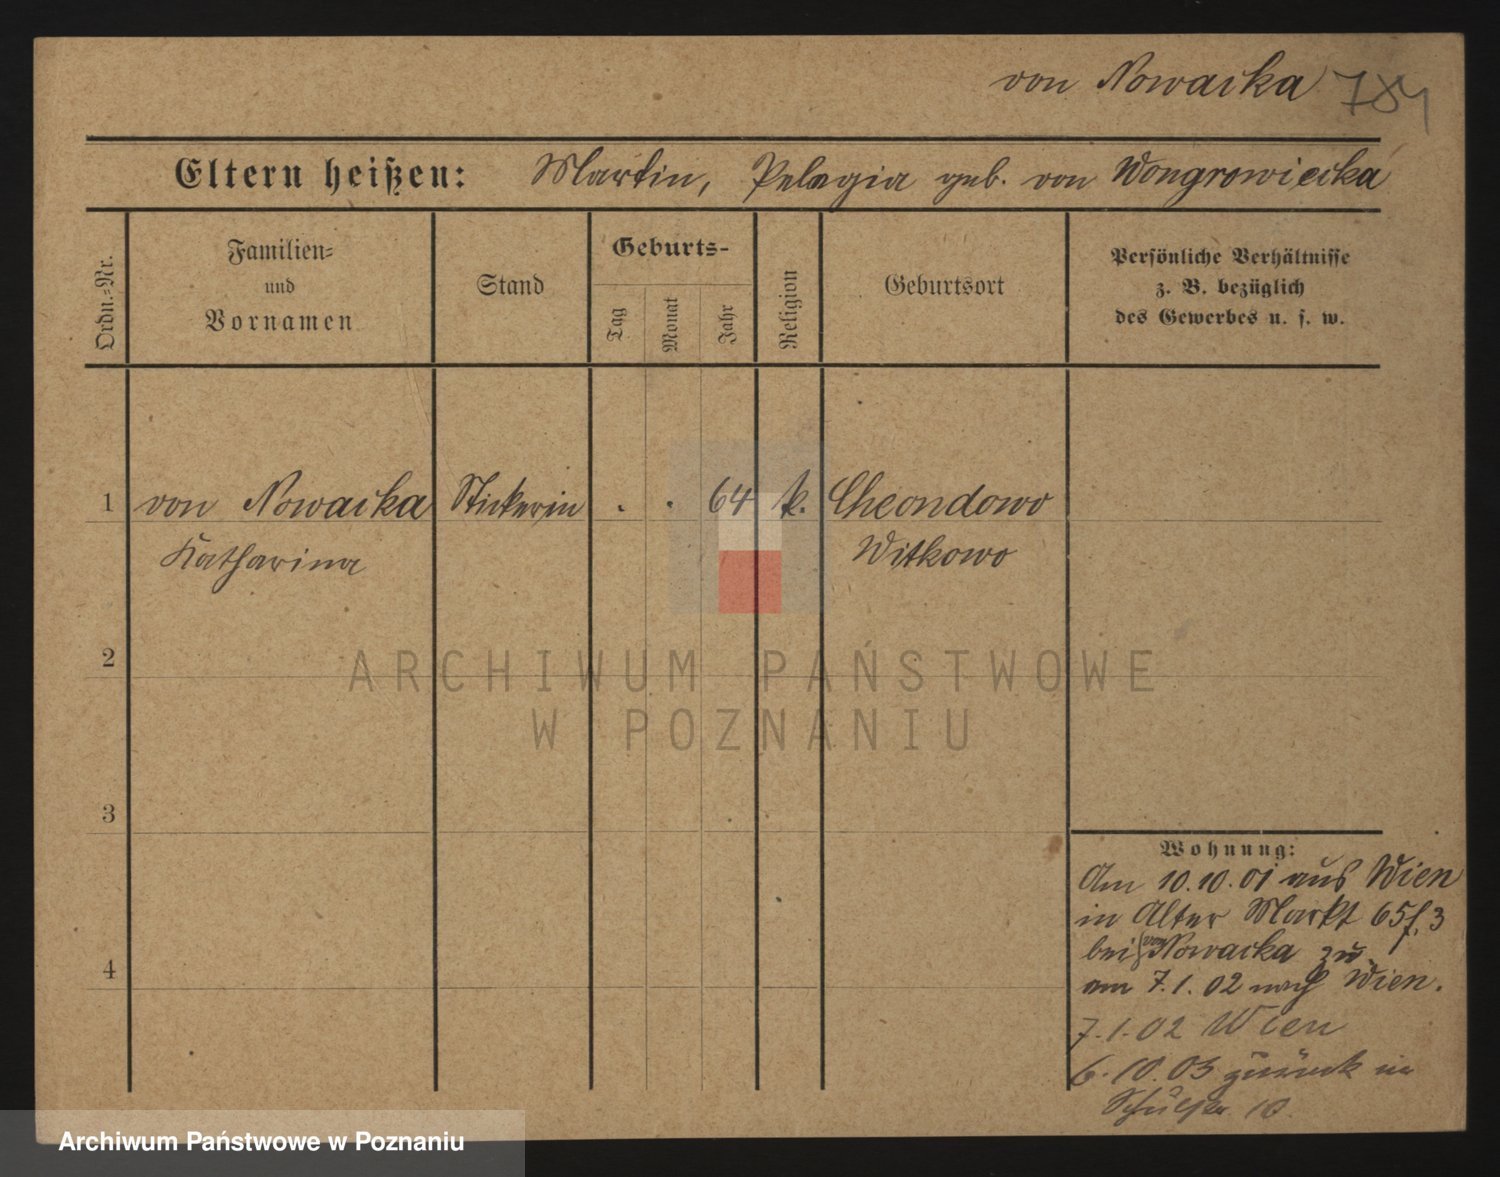 von Nowacka 784
Eltern heißen: Martin, Pelagia geb. von Wongrowiecka
Ordn.=Nr.
Familien=
und
Vornamen
Stand
Geburts-
Tag
Monat
Jahr
Religion
Geburtsort
Persönliche Verhältnisse
z. B. bezüglich
des Gewerbes u. s. w.
1 von Nowacka Stickerin . . 64 k. Cheondowo
Katharina Witkowo
2
ARCHIWUM PAŃSTWOWE
W POZNANIU
3
Wohnung:
Am 10.10.01 aus Wien
in Alter Markt 65f.3
bei von Nowacka zu
4
am 7.1.02 nach Wien.
7.1.02 Wien
6.10.03 zurück in
10.
Archiwum Państwowe w Poznaniu